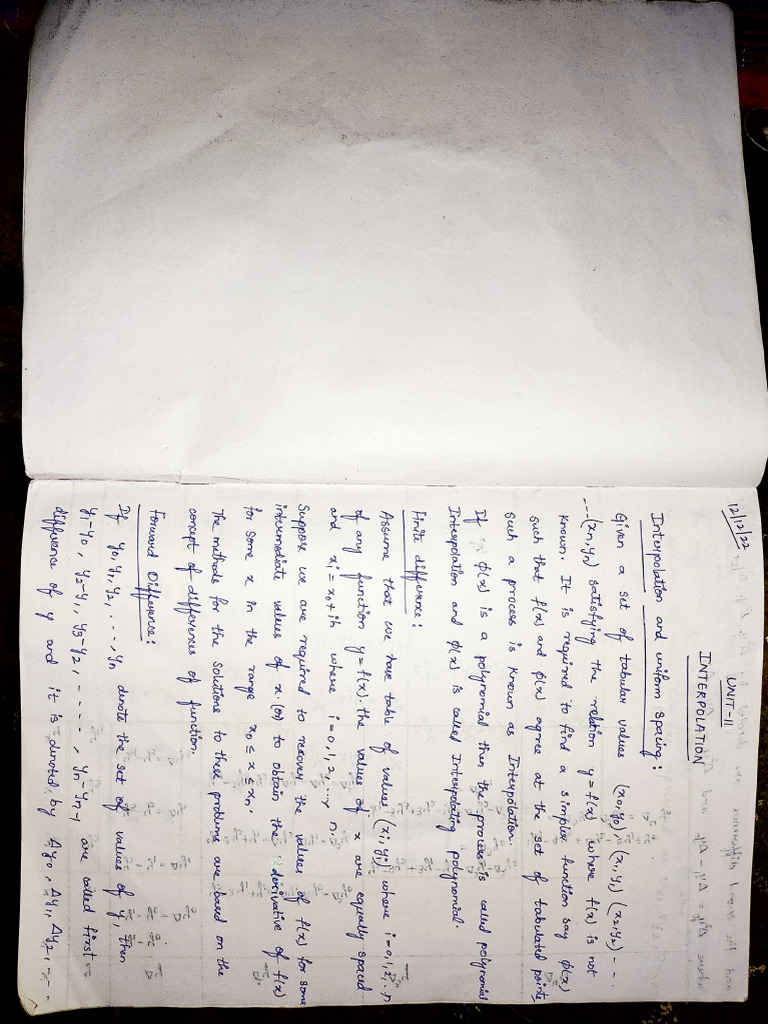 12/12/22
UNIT-II
INTERPOLATION
Interpolation and uniform spacing:
Given a set of tabular values (x0,y0), (x1,y1) (x2,y2) - - .
---(xn,yn) satisfying the relation y=f(x) where f(x) is not
known. It is required to find a simpler function say φ(x)
such that f(x) and φ(x) agree at the set of tabulated points
such a process is known as Interpolation.
If φ(x) is a polynomial then the process is called polynomial
Interpolation and φ(x) is called Interpolating polynomial.
Finite difference:
Assume that we have table of values (xi,yi) where i=0,1,2,..n
of any function y=f(x). the values of x are equally spaced
and xi=x0+ih where i=0,1,2,... n.
Suppose we are required to recover the values of f(x) for some
intermediate values of x (or) to obtain the derivative of f(x)
for some x in the range x0≤x≤xn.
The methods for the solutions to these problems are based on the
concept of differences of function.
Forward Difference:
If y0,y1,y2,...,yn denote the set of values of y, then
y1-y0, y2-y1, y3-y2, - - - -, yn-yn-1 are called first
difference of y and it is denoted by Δy0, Δy1, Δy2, - -